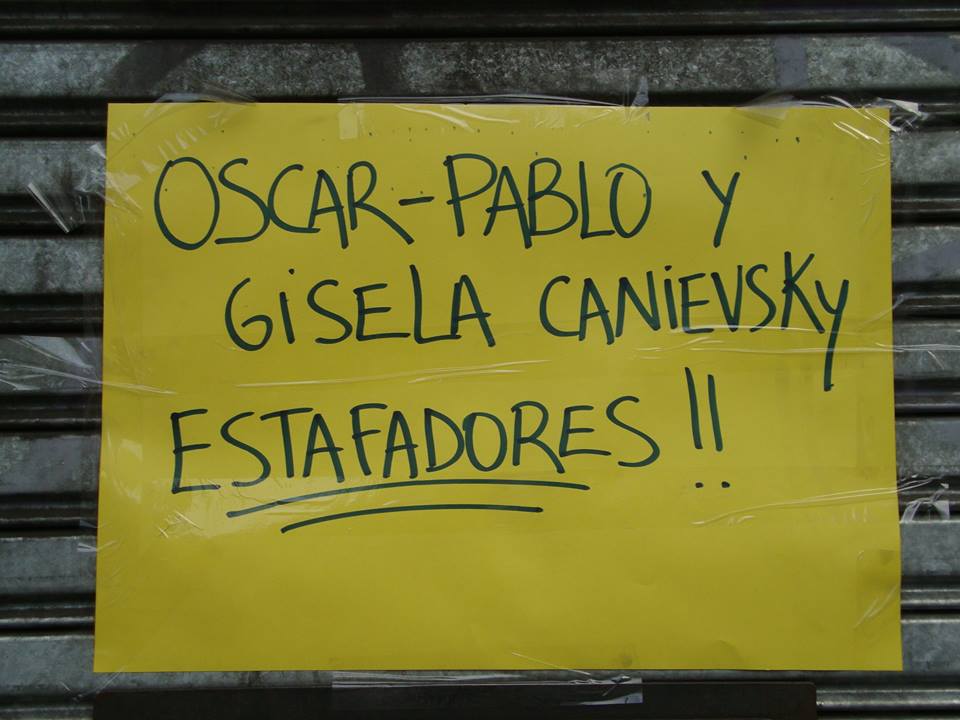 OSCAR-PABLO Y
GISELA CANIEVSKY
ESTAFADORES !!